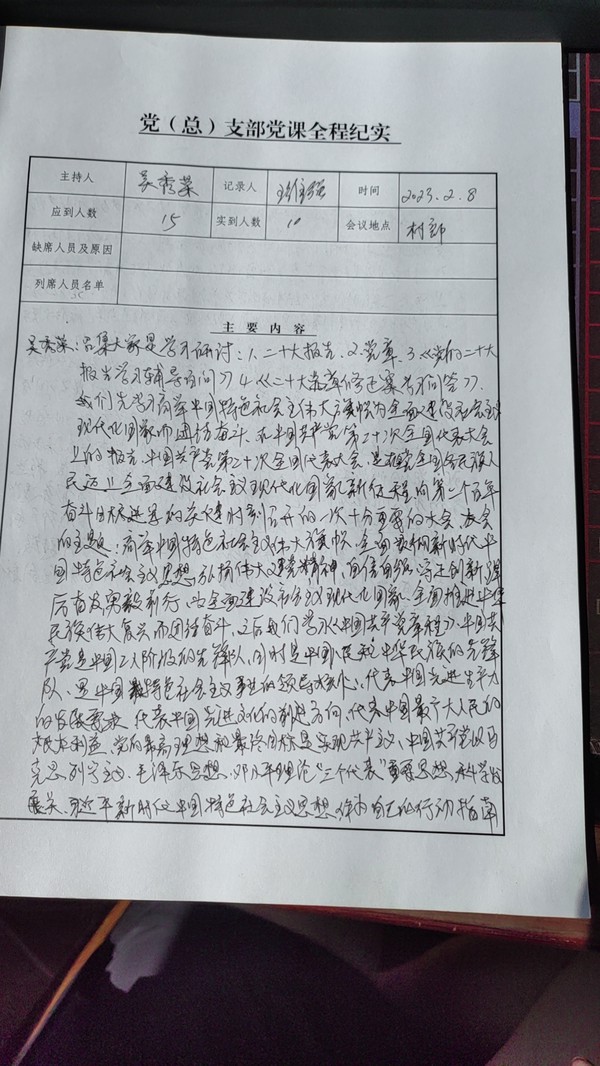 党（总）支部党课全程纪实
主持人 吴秀荣 记录人 时间 2023.2.8
应到人数 15 实到人数 10 会议地点 村部
缺席人员及原因
列席人员名单
主要内容
吴秀荣：召集大家是学习研讨：1、二十大报告 2、党章 3《党的二十大
报告学习辅导百问》4《二十大党章修正案学习问答》。
我们先学习高举中国特色社会主义伟大旗帜为全面建设社会主义
现代化国家而团结奋斗、在中国共产党第二十次全国代表大会
上的报告、中国共产党第二十次全国代表大会、是在全党全国各族人
民迈上全面建设社会主义现代化国家新征程向第二个百年
奋斗目标进军的关键时刻召开的一次十分重要的大会、大会
的主题：高举中国特色社会主义伟大旗帜、全面贯彻新时代中
国特色社会主义思想、弘扬伟大建党精神、自信自强、守正创新、踔
厉奋发、勇毅前行、为全面建设社会主义现代化国家、全面推进中华
民族伟大复兴而团结奋斗、之后我们学习《中国共产党章程》、中国共
产党是中国工人阶级的先锋队、同时是中国人民和中华民族的先锋
队、是中国特色社会主义事业的领导核心、代表中国先进生产力
的发展要求、代表中国先进文化的前进方向、代表中国最广大人民的
根本利益、党的最高理想和最终目标是实现共产主义、中国共产党以马
克思列宁主义、毛泽东思想、邓小平理论“三个代表”重要思想、科学发
展关、习近平新时代中国特色社会主义思想、作为自己的行动指南